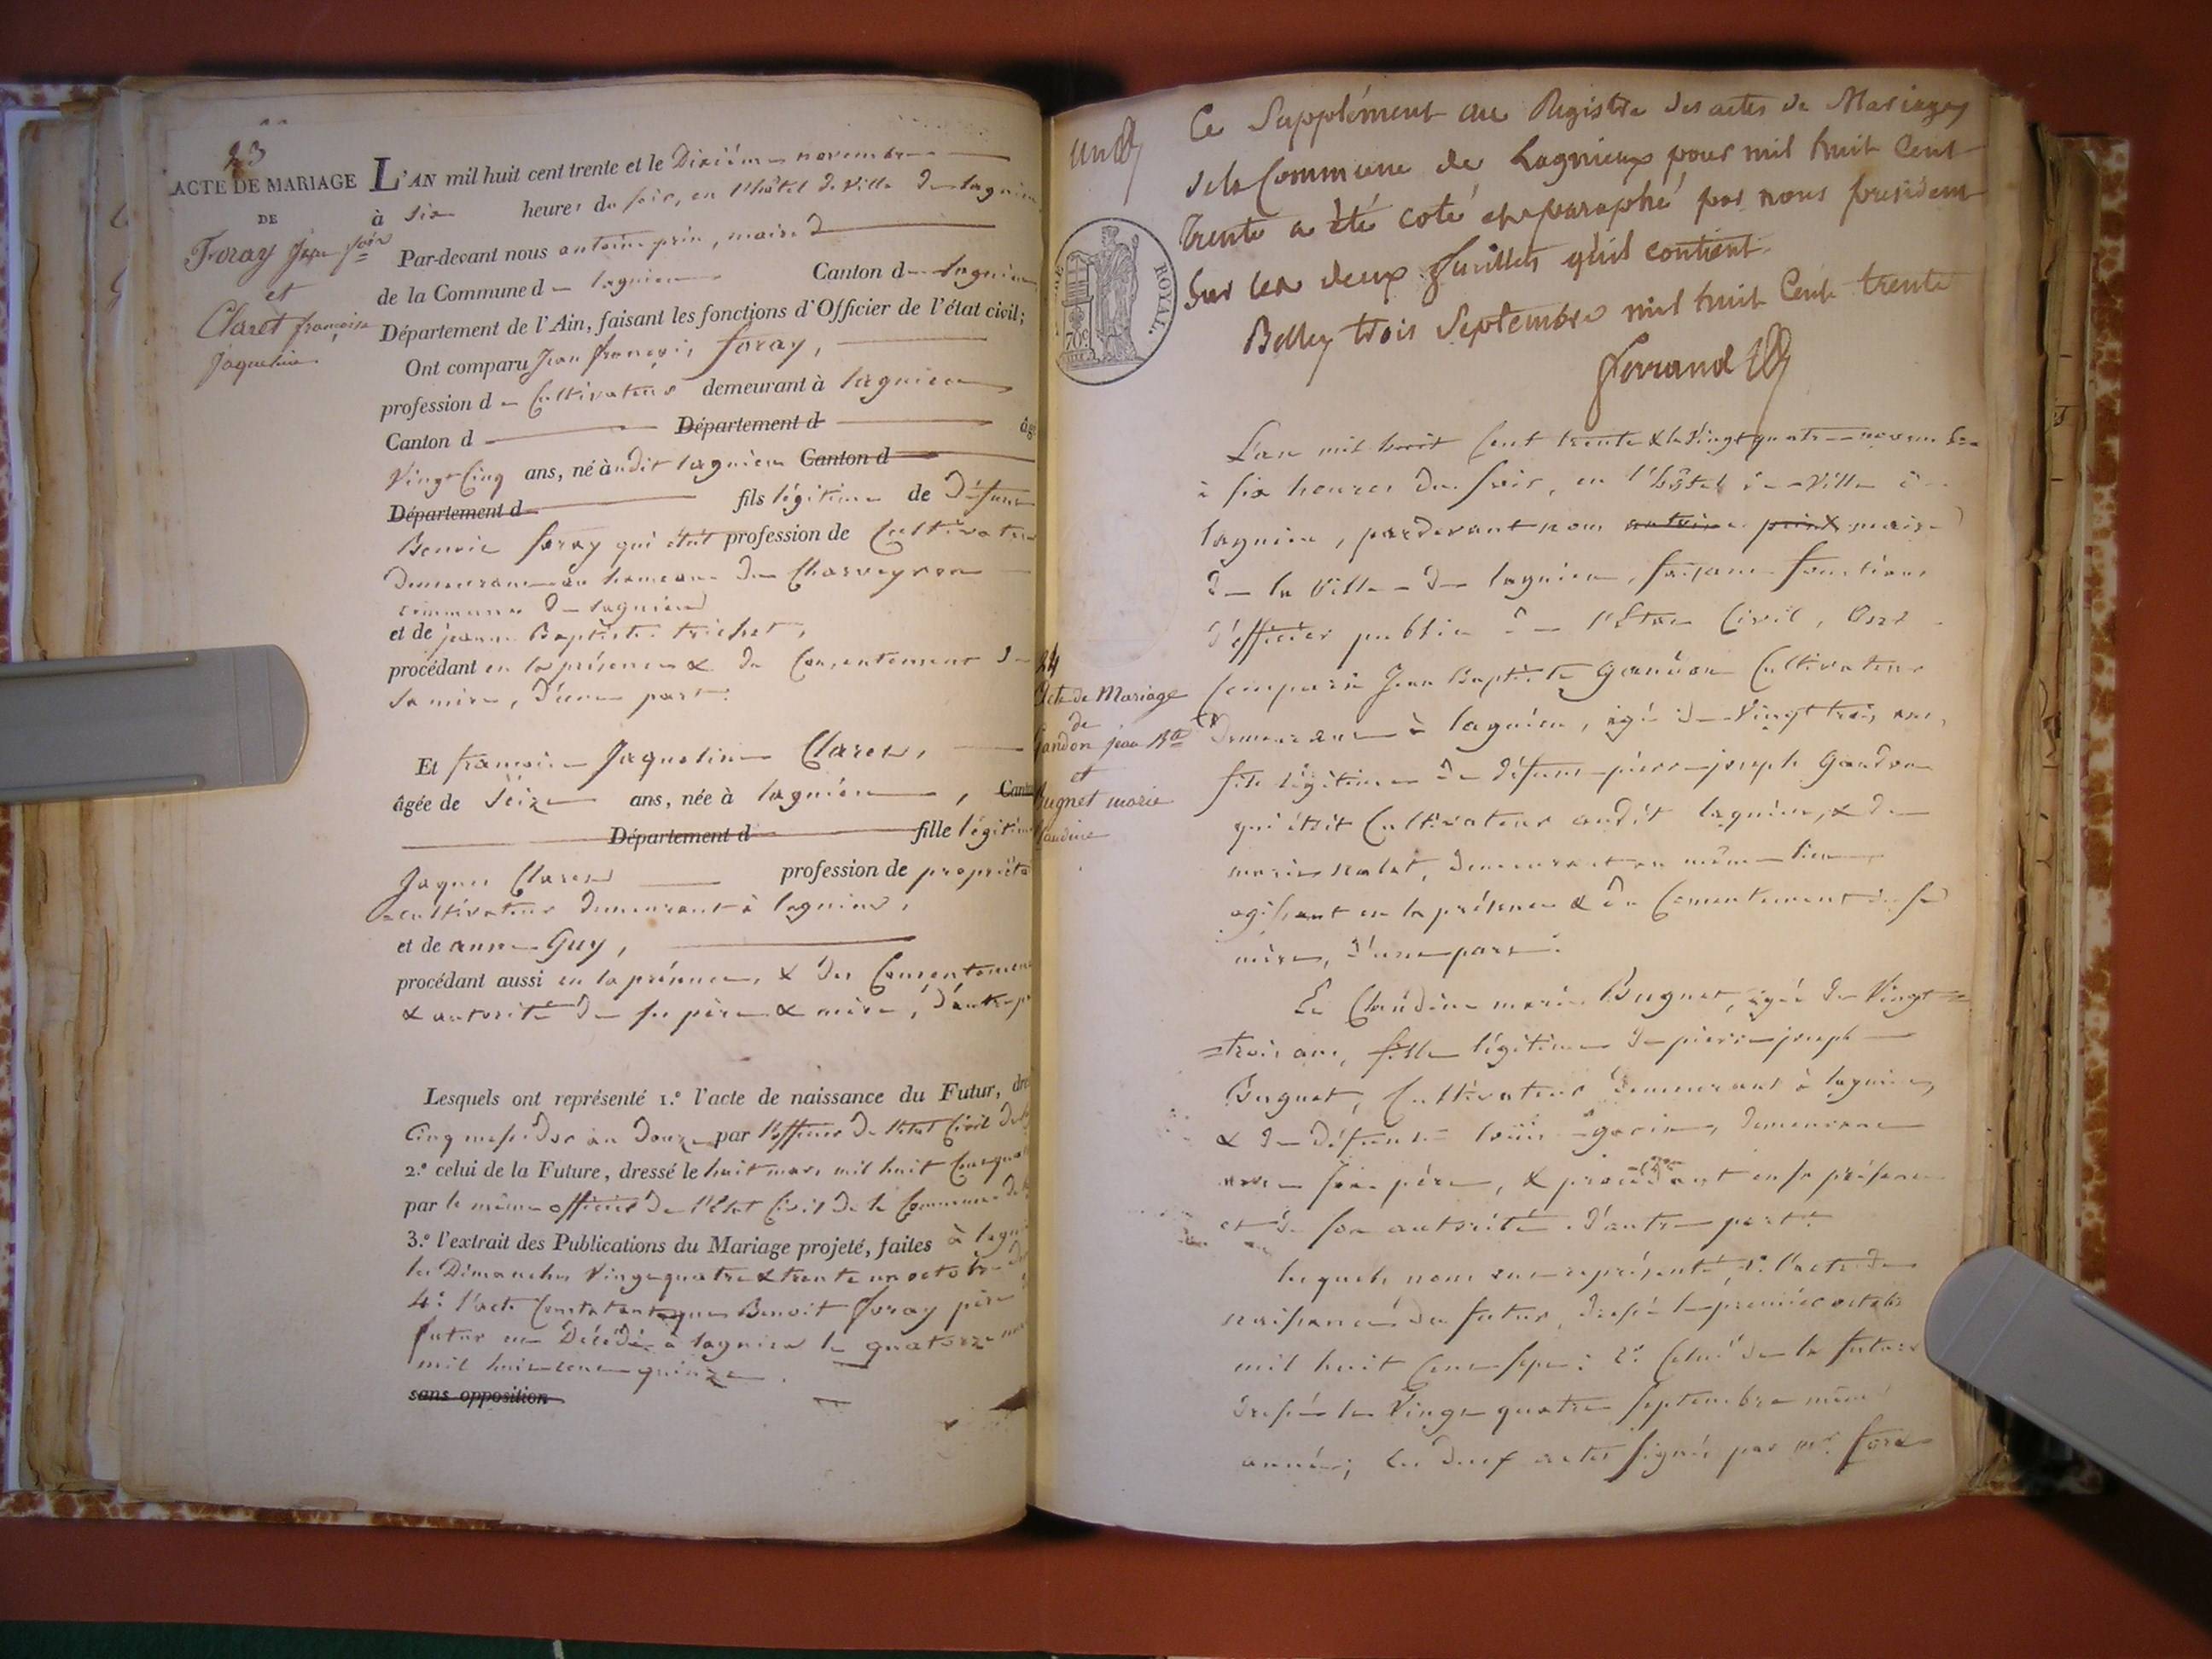 23
ACTE DE MARIAGE
DE
Foray Jean fois
et
Claret françoise
Jaqueline.
L'AN mil huit cent trente et le Dixième novembre
à six heures du soir, en l'hôtel de ville de lagnieu
Par-devant nous antoine prin, maire
de la Commune d lagnieu Canton d lagnieu
Département de l'Ain, faisant les fonctions d'Officier de l'état civil;
Ont comparu Jean françois foray,
profession d Cultivateur demeurant à lagnieu
Canton d Département d âgé
Vingt Cinq ans, né à udit lagnieu Canton d
Département d fils légitime de Défunt
Benoit foray qui était profession de Cultivateur
Demeurant au hameau de Charveyron
commune de lagnieu
et de jeanne Baptiste trichet,
procédant en la présence & du Consentement de
sa mère, d'une part.
Et françoise Jaqueline Claret,
âgée de Seize ans, née à lagnieu, Canton
Département d fille légitime
Jaques Claret profession de propriéta
=cultivateur demeurant à lagnieu,
et de anne Guy,
procédant aussi en la présence, & du Consentement
& autorité de ses père & mère, d'autre p
Lesquels ont représenté 1.º l'acte de naissance du Futur, dre
Cinq messidor an Douze par l'officier de l'état Civil de
2.º celui de la Future, dressé le huit mars mil huit Cent quat
par le même officier de l'état Civil de la Commune de
3.º l'extrait des Publications du Mariage projeté, faites à lagni
les Dimanches Vingt quatre & trente un octobre
4.º l'acte Constatant que Benoit foray père
futur est Décédé à lagnieu le quatorze
mil huit cent quinze.
sans opposition
un
Ce Supplément au Registre des actes de Mariages
de la Commune de Lagnieux pour mil huit Cent
Trente a été coté et paraphé par nous president
Sur les deux feuillets qu'il contient.
Belley trois Septembre mil huit Cent trente
ROYAL.
70c
24
Acte de Mariage
de
Gandon jean Bte
et
Bugnet marie
Claudine
L'an mil huit Cent trente & le Vingt quatre novembre
à six heures du soir, en l'hôtel de Ville de
lagnieu, pardevant nous antoine prin maire
de la Ville de lagnieu, faisant fonctions
d'officier public de l'État Civil, Ont
Comparu Jean Baptiste Gandon Cultivateur
Demeurant à lagnieu, âgé de Vingt trois ans,
fils légitime de défunt pierre joseph Gandon
qui était Cultivateur audit lagnieu, & de
marie, demeurant au même lieu
agissant en la présence & du Consentement de sa
mère, d'une part.
Et Claudine marie Bugnet, âgée de Vingt=
=trois ans, fille légitime de pierre joseph
Bugnet, Cultivateur demeurant à lagnieu,
& de défunte, demeurant
avec son père, & procédant en sa présence
et de son autorité. d'autre part.
lesquels nous ont représenté, 1.º l'acte de
naissance du futur, dressé le premier octobre
mil huit Cent sept: 2.º Celui de la future
dressé le Vingt quatre septembre même
année; les deux actes signés par mr.